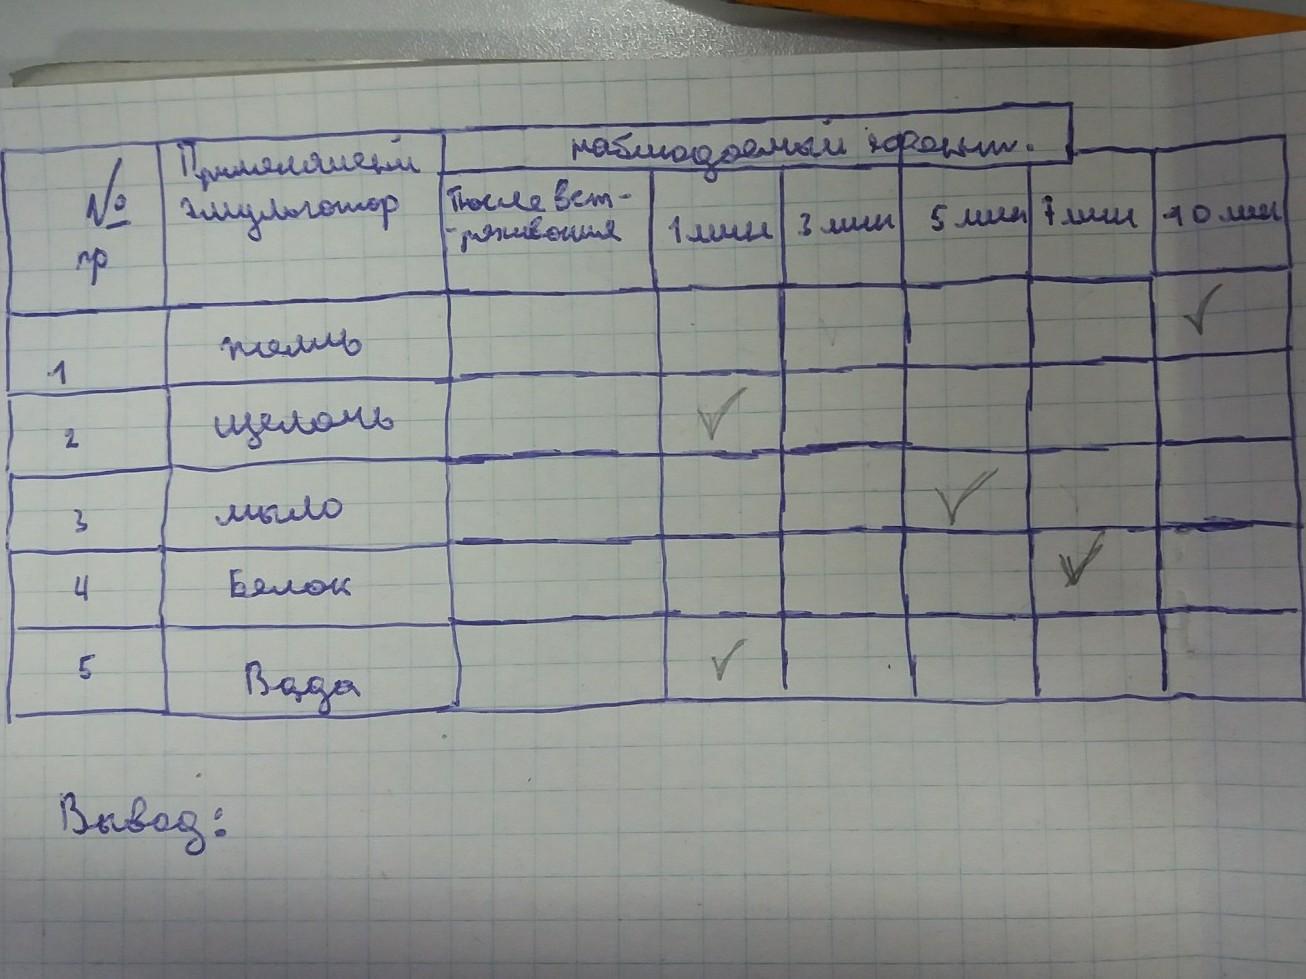 № пр
Применяемый эмульгатор
наблюдаемый
После вст-
-ряхивания
1 мин
3 мин
5 мин
7 мин
10 мин
1
желчь
✓
2
щелочь
✓
3
мыло
✓
4
Белок
✓
5
Вода
✓
Вывод: